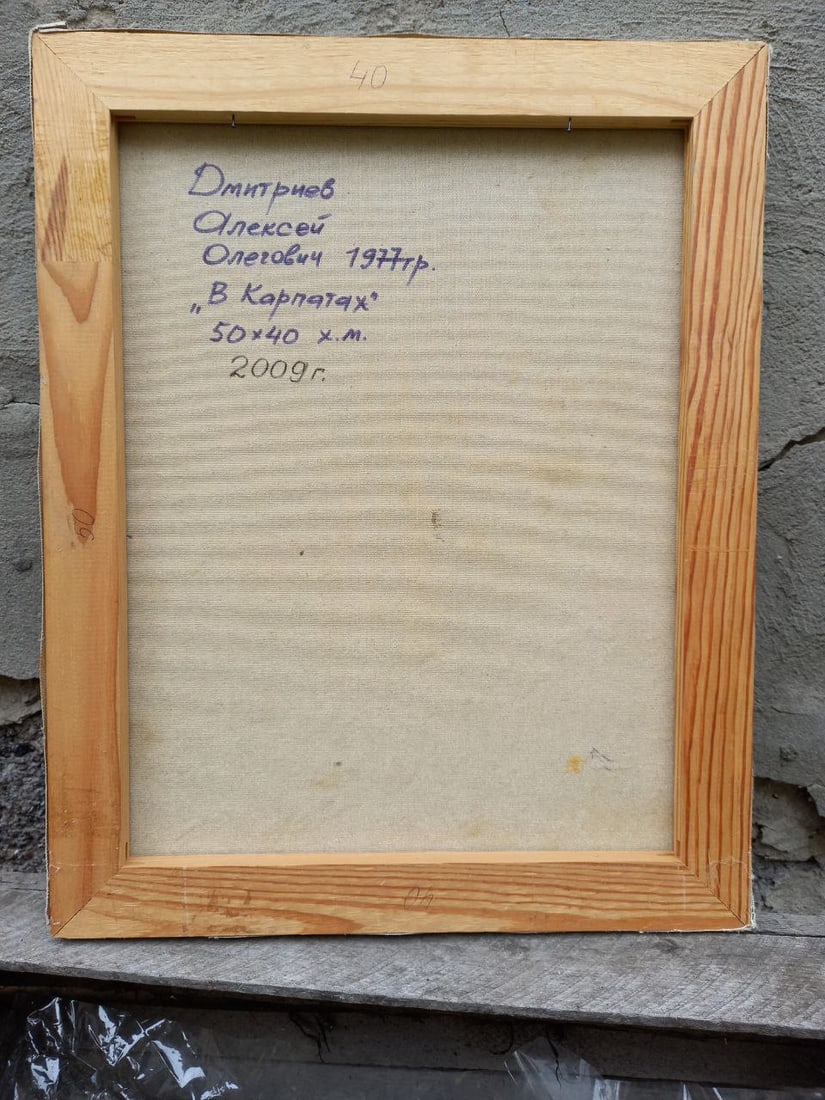 40
Дмитриев
Алексей
Олегович 1977гр.
„В Карпатах"
50×40 х.м.
2009г.
50
40